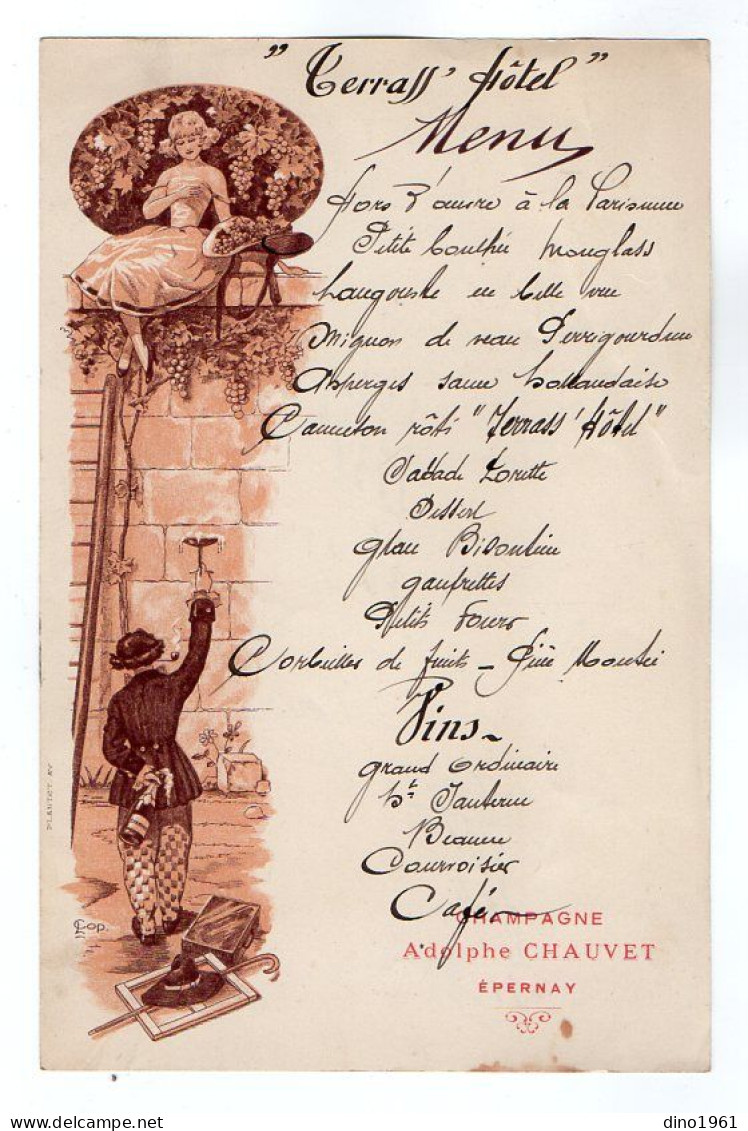 "Terrass' Hôtel"
Menu
Hors d'œuvre à la Parisienne
Petite bouchée Monglass
Langouste en belle vue
Mignon de veau Perrigourdine
Asperges sauce hollandaise
Canneton rôti "Terrass' Hôtel"
Salade Lorette
Dessert
glace Bisontine
gaufrettes
Petits Fours
Corbeilles de fruits - Pièce Montée
Vins -
grand ordinaire
ht Sauterne
Beaune
Courvoisier
Café
CHAMPAGNE
Adolphe CHAUVET
ÉPERNAY
PLANTET. AY
dino1961